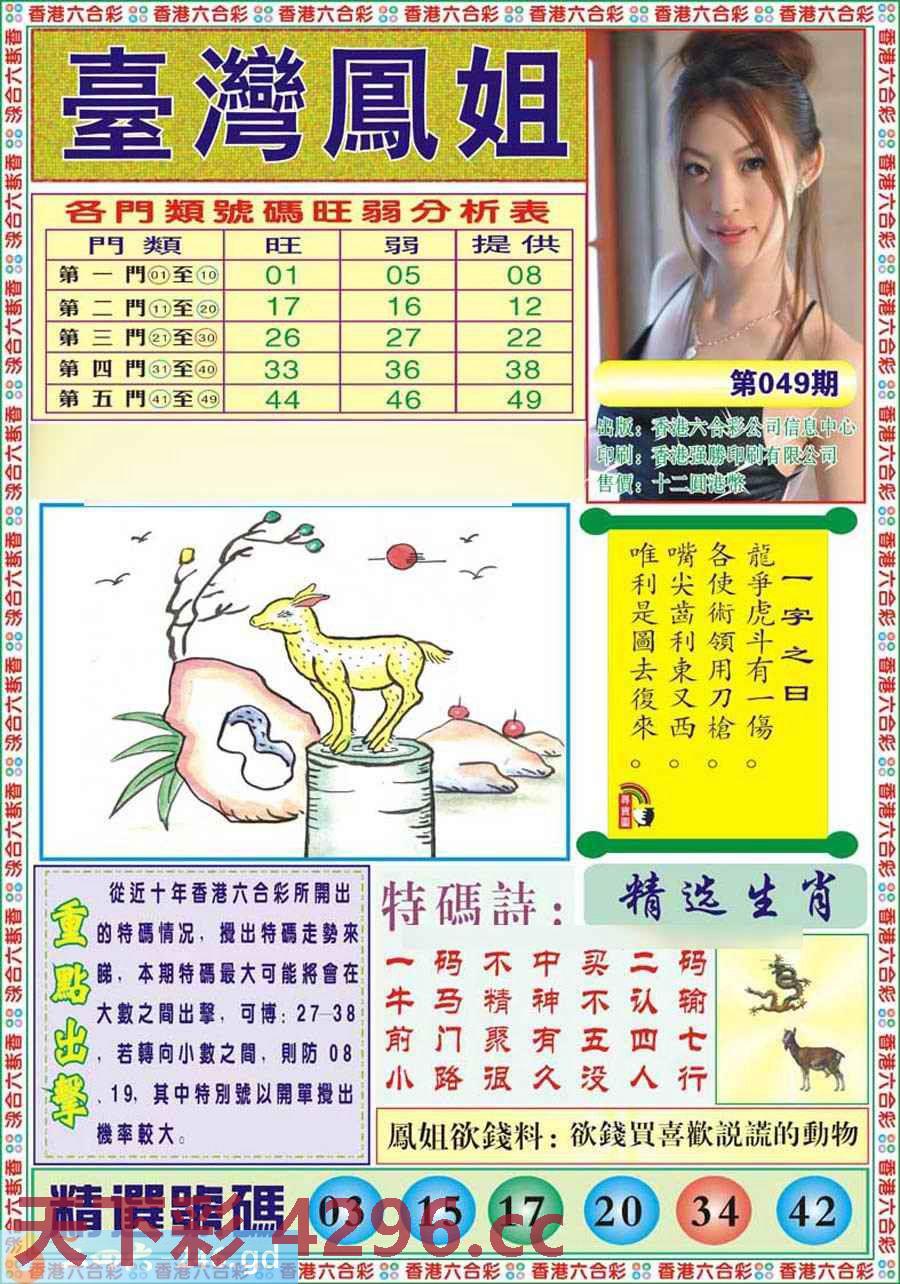 香港六合彩
臺灣鳳姐
各門類號碼旺弱分析表
門類 旺 弱 提供
第一門01至10 01 05 08
第二門11至20 17 16 12
第三門21至30 26 27 22
第四門31至40 33 36 38
第五門41至49 44 46 49
第049期
出版：香港六合彩公司信息中心
印刷：香港强勝印刷有限公司
售價：十二圓港幣
一字之曰
龍爭虎斗有一傷。
各使術領用刀槍。
嘴尖齒利東又西。
唯利是圖去復來。
尋寶圖
重點出擊
從近十年香港六合彩所開出
的特碼情况，攪出特碼走勢來
睇，本期特碼最大可能將會在
大數之間出擊，可博：27—38
，若轉向小數之間，則防 08
、19，其中特別號以開單攪出
機率較大。
特碼詩：
一码不中买二码
牛马精神不认输
前门聚有五四七
小路很久没人行
精选生肖
鳳姐欲錢料：欲錢買喜歡説謊的動物
精選號碼 03 15 17 20 34 42
天下彩 4296.cc
香港六合彩